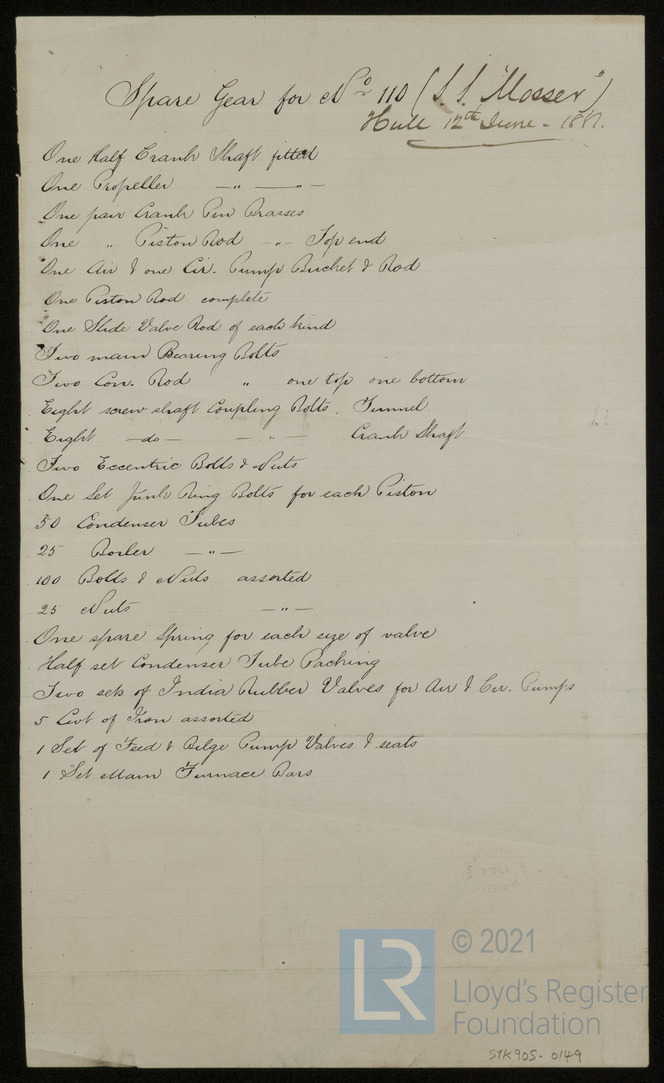 Spare Gear for No 110 (S.S. "Mosser")
Hull 12th June - 1881.
One Half Crank Shaft fitted
One Propeller — " — " —
One pair Crank Pin Brasses
One " Piston Rod - " - Top end
One Air & one Cir. Pump Bucket & Rod
One Piston Rod complete
One Slide Valve Rod of each kind
Two main Bearing Bolts
Two Con. Rod " one top one bottom
Eight screw shaft Coupling Bolts. Tunnel
Eight — do — — " — Crank Shaft
Two Eccentric Bolts & Nuts
One Set Junk Ring Bolts for each Piston
50 Condenser Tubes
25 Boiler — " —
100 Bolts & Nuts assorted
25 Nuts — " —
One spare Spring for each size of valve
Half set Condenser Tube Packing
Two sets of India Rubber Valves for Air & Cir. Pumps
5 Cwt of Iron assorted
1 Set of Feed & Bilge Pump Valves & seats
1 Set Main Furnace Bars
LR © 2021
Lloyd's Register
Foundation
STK905-0149